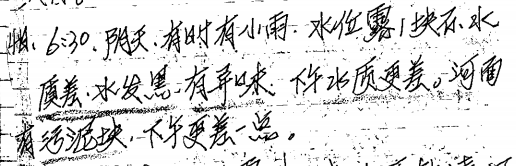 6:30. 阴天. 有时有小雨. 水位露1块石. 水
质差. 水发黑. 有异味. 下午水质更差。河面
有污泥块. 下午更差一点。